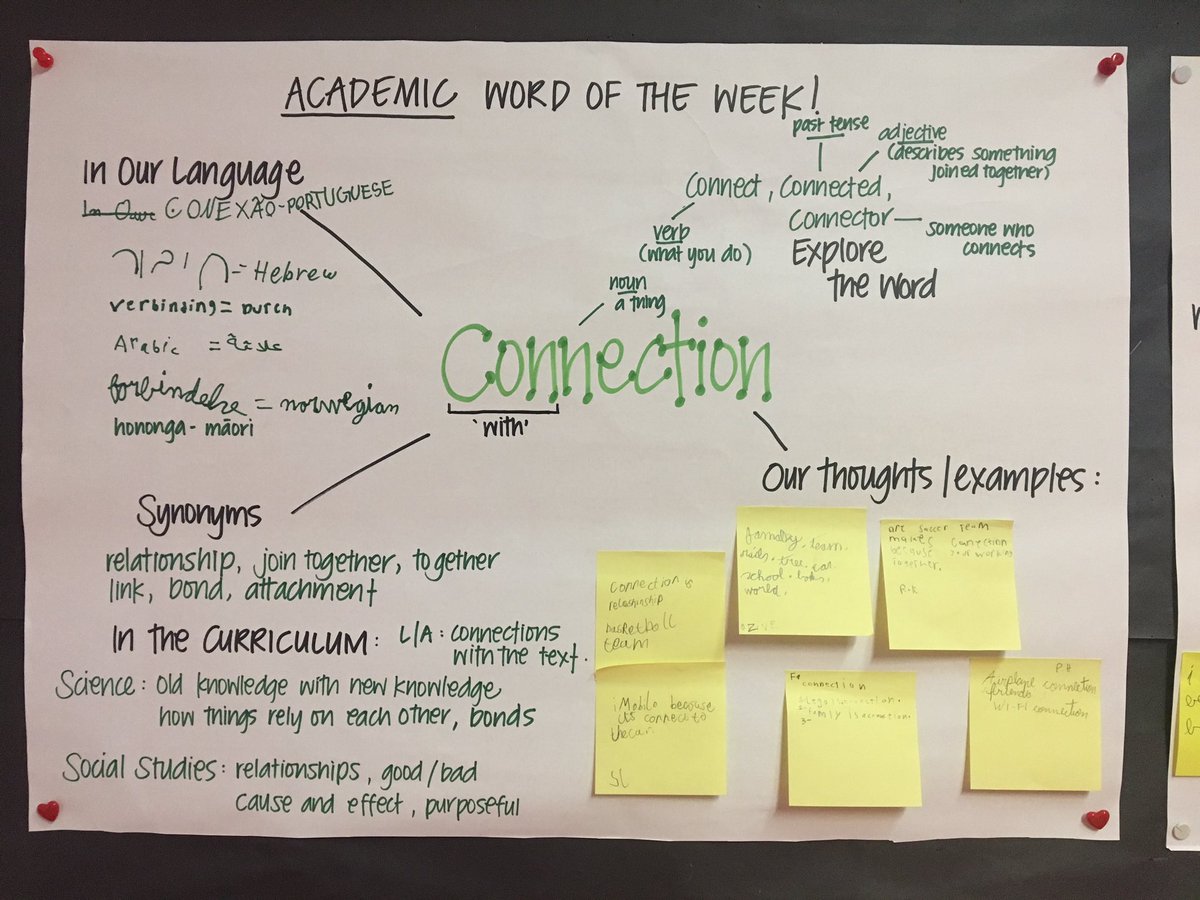 ACADEMIC WORD OF THE WEEK!
In Our Language
In Our CONEXÃO-PORTUGUESE
= Hebrew
verbinding = Dutch
Arabic =
= norwegian
hononga - māori
past tense
adjective
(describes something
joined together)
Connect, Connected,
Connector — someone who
connects
verb
(what you do)
Explore
the Word
noun
a thing
Connection
'with'
Synonyms
relationship, join together, together
link, bond, attachment
In the CURRICULUM: L/A: connections
with the text.
Science: Old knowledge with new knowledge
how things rely on each other, bonds
Social Studies: relationships, good/bad
cause and effect, purposeful
Our thoughts/examples:
connection is
relashinship
basketball
team
team.
tree. car.
school.
world.
soccer team
makes connection
working
together.
R.K
iMobile because
its connected to
the car
SL
connection
family is
3-
P.H
Airplane connection
friends
WI-FI connection